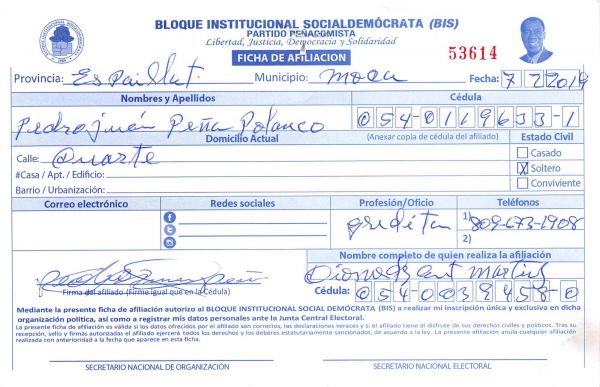 BLOQUE INSTITUCIONAL SOCIALDEMÓCRATA (BIS)
PARTIDO PEÑAGOMISTA
Libertad, Justicia, Democracia y Solidaridad
FICHA DE AFILIACION
53614
Provincia: Espaillat. Municipio: moca Fecha: 7 2 2019
Nombres y Apellidos Cédula
Pedro juán Peña Polanco 054-0119633-1
Domicilio Actual (Anexar copia de cédula del afiliado) Estado Civil
Calle: Duarte Casado
#Casa / Apt. / Edificio: X Soltero
Barrio / Urbanización: Conviviente
Correo electrónico Redes sociales Profesión/Oficio Teléfonos
1) 809-673-1908
2)
Nombre completo de quien realiza la afiliación
Firma del afiliado (Firme igual que en la Cédula)
Cédula: 054-0039458-0
Mediante la presente ficha de afiliación autorizo al BLOQUE INSTITUCIONAL SOCIAL DEMÓCRATA (BIS) a realizar mi inscripción única y exclusiva en dicha
organización política, así como a registrar mis datos personales ante la Junta Central Electoral.
La presente ficha de afiliación es válida si los datos ofrecidos por el afiliado son correctos, las declaraciones veraces y si el afiliado tiene el disfrute de sus derechos civiles y políticos. Tras su
recepción, sello y firmas autorizadas el afiliado ejercerá todos los derechos y los deberes estatutariamente sancionados, de acuerdo a la ley. La presente afiliación anula cualquier afiliación
realizada con anterioridad a la fecha que aparece en esta ficha.
SECRETARIO NACIONAL DE ORGANIZACIÓN SECRETARIO NACIONAL ELECTORAL